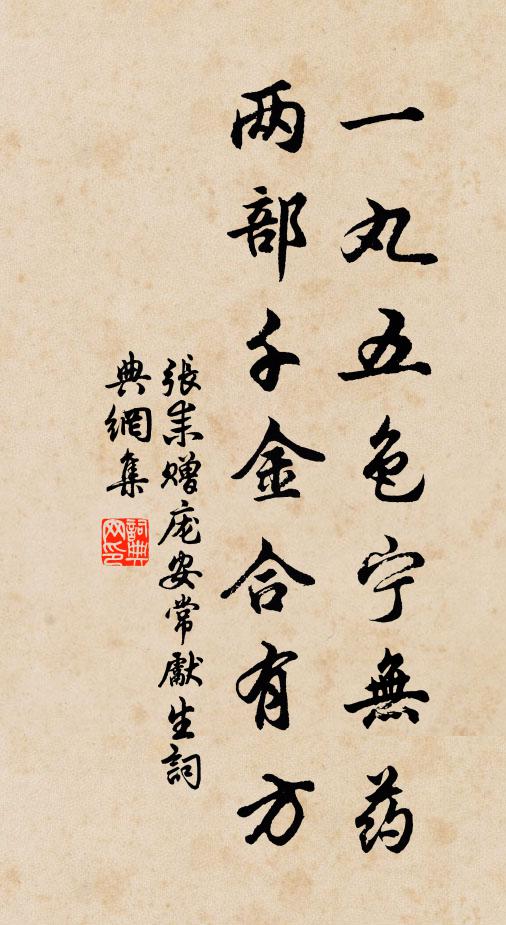 一丸五色宁無药
两部千金合有方
張耒贈庞安常獻生詞
典網集
詞典网印